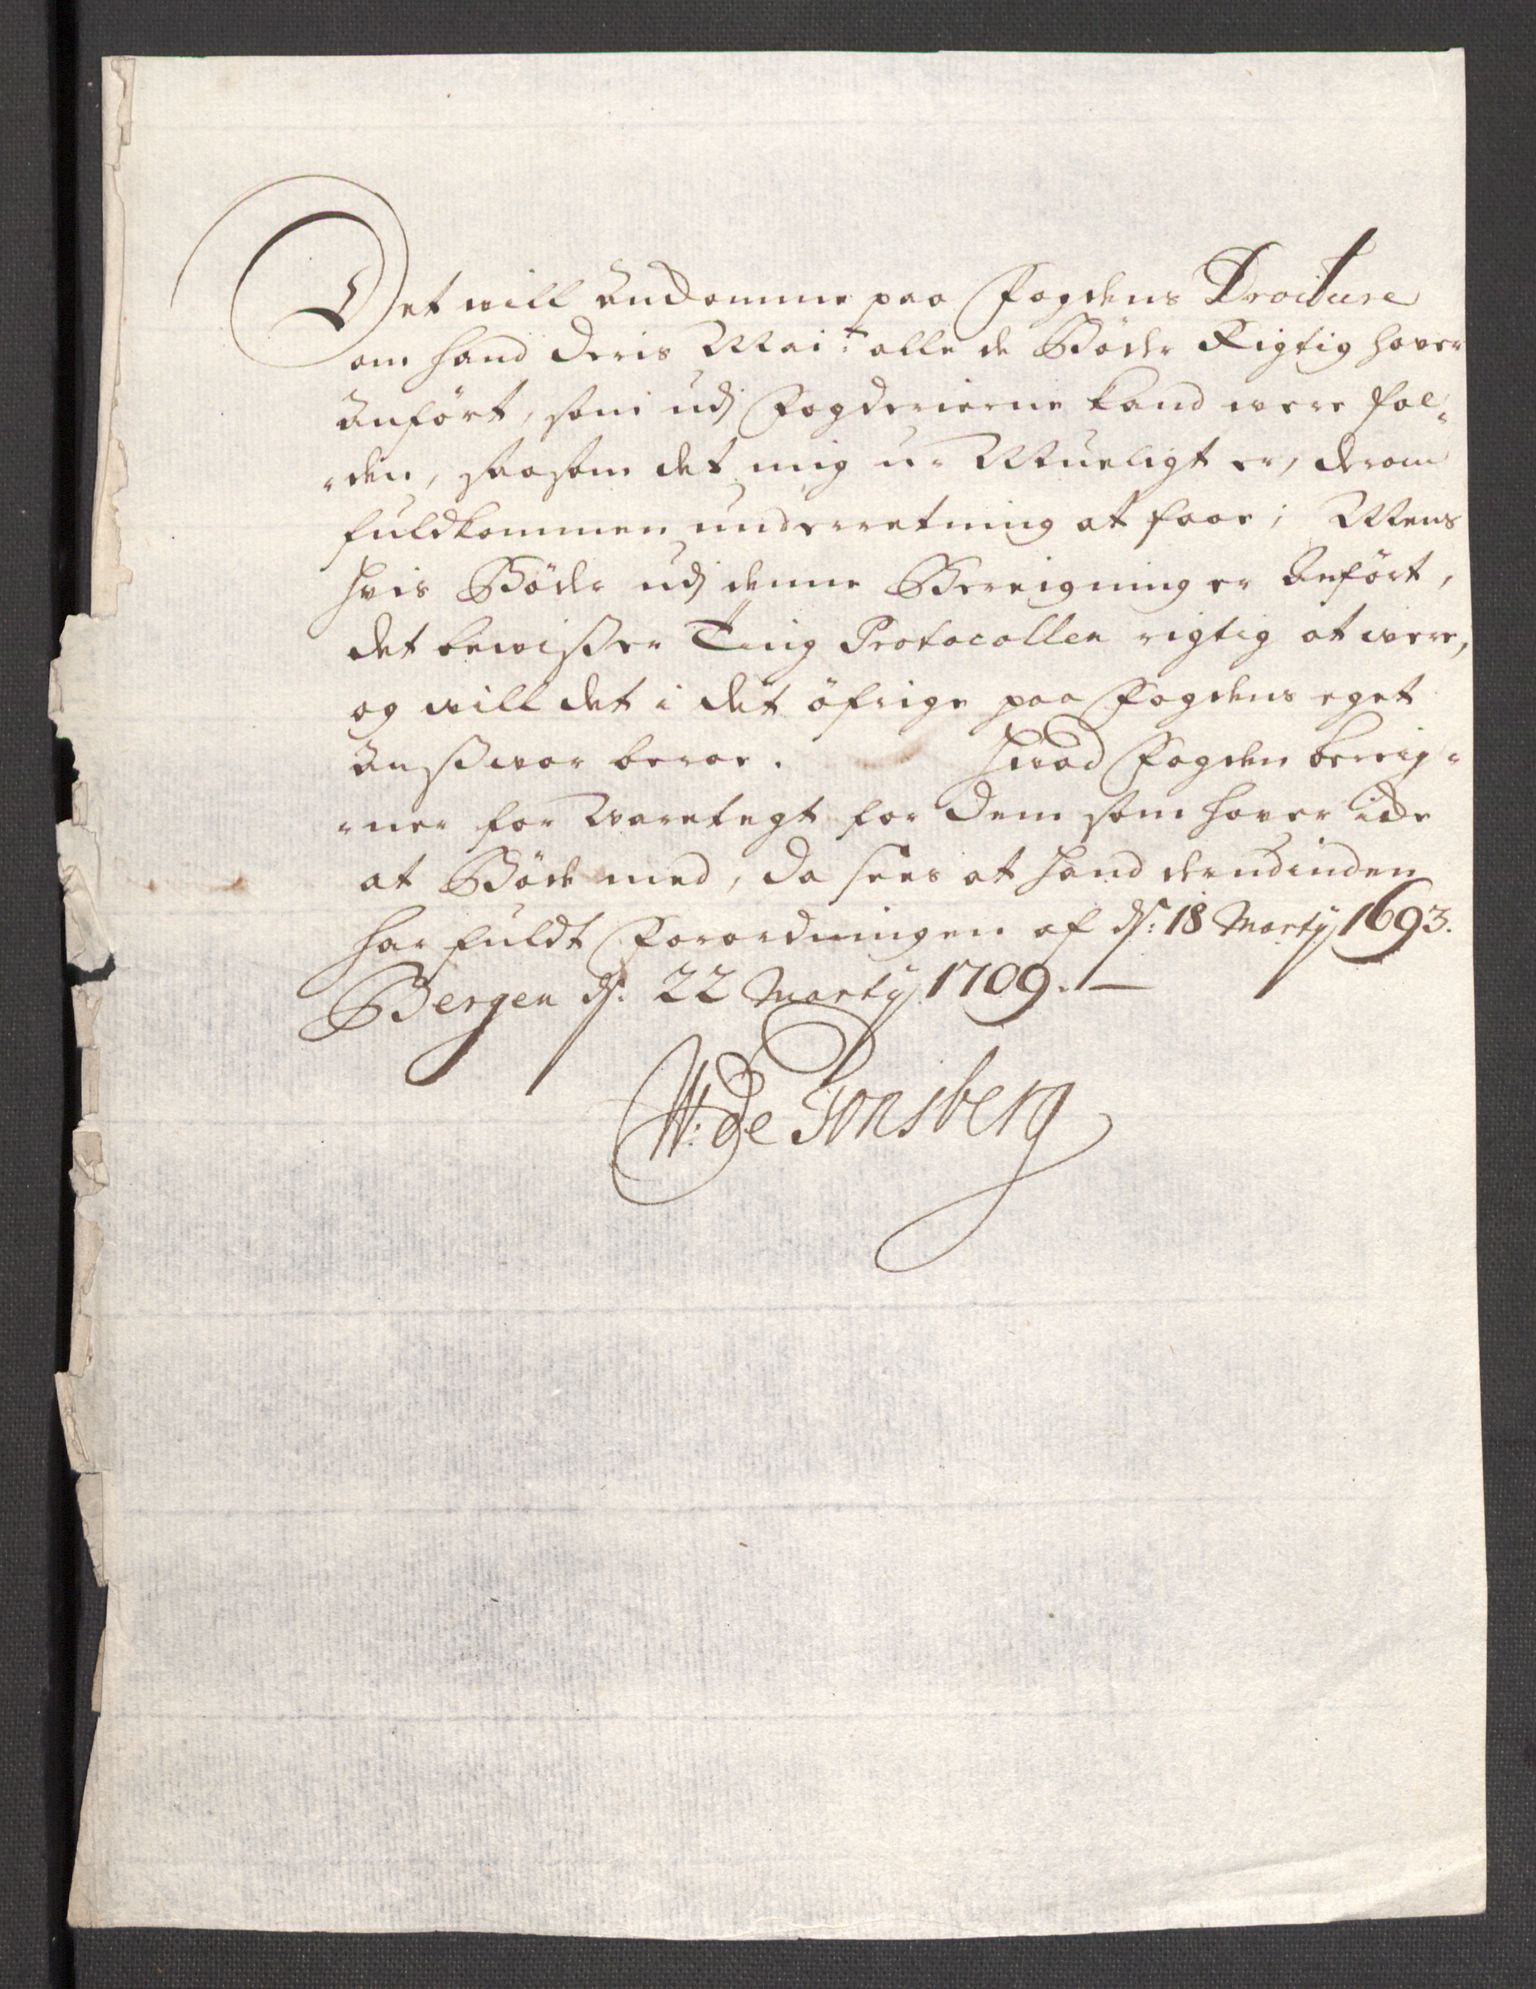 Det will Ankomme paa Fogdens Droiture
om hand Deris Mai:t alle de Böder Rigtig haver
Anfört, som udj Fogderierne kand were fal-
-den, saasom det mig u-Mueligt er, derom
fuldkommen underretning at faae; Mens
hvis Böder udj denne Bereigning er Anfört,
det bewißer Ting Protocollen rigtig at were,
og will det i det öfrige paa Fogdens eget
Answar beroe. Hwad Fogden bereig-
-ner for Waretegt for Dem som haver icke
at Böde med, da sees at hand derudinden
har fuldt Forordningen af ds: 18 Marty 1693.
Bergen ds: 22 Marty 1709.
W: de Tonsberg